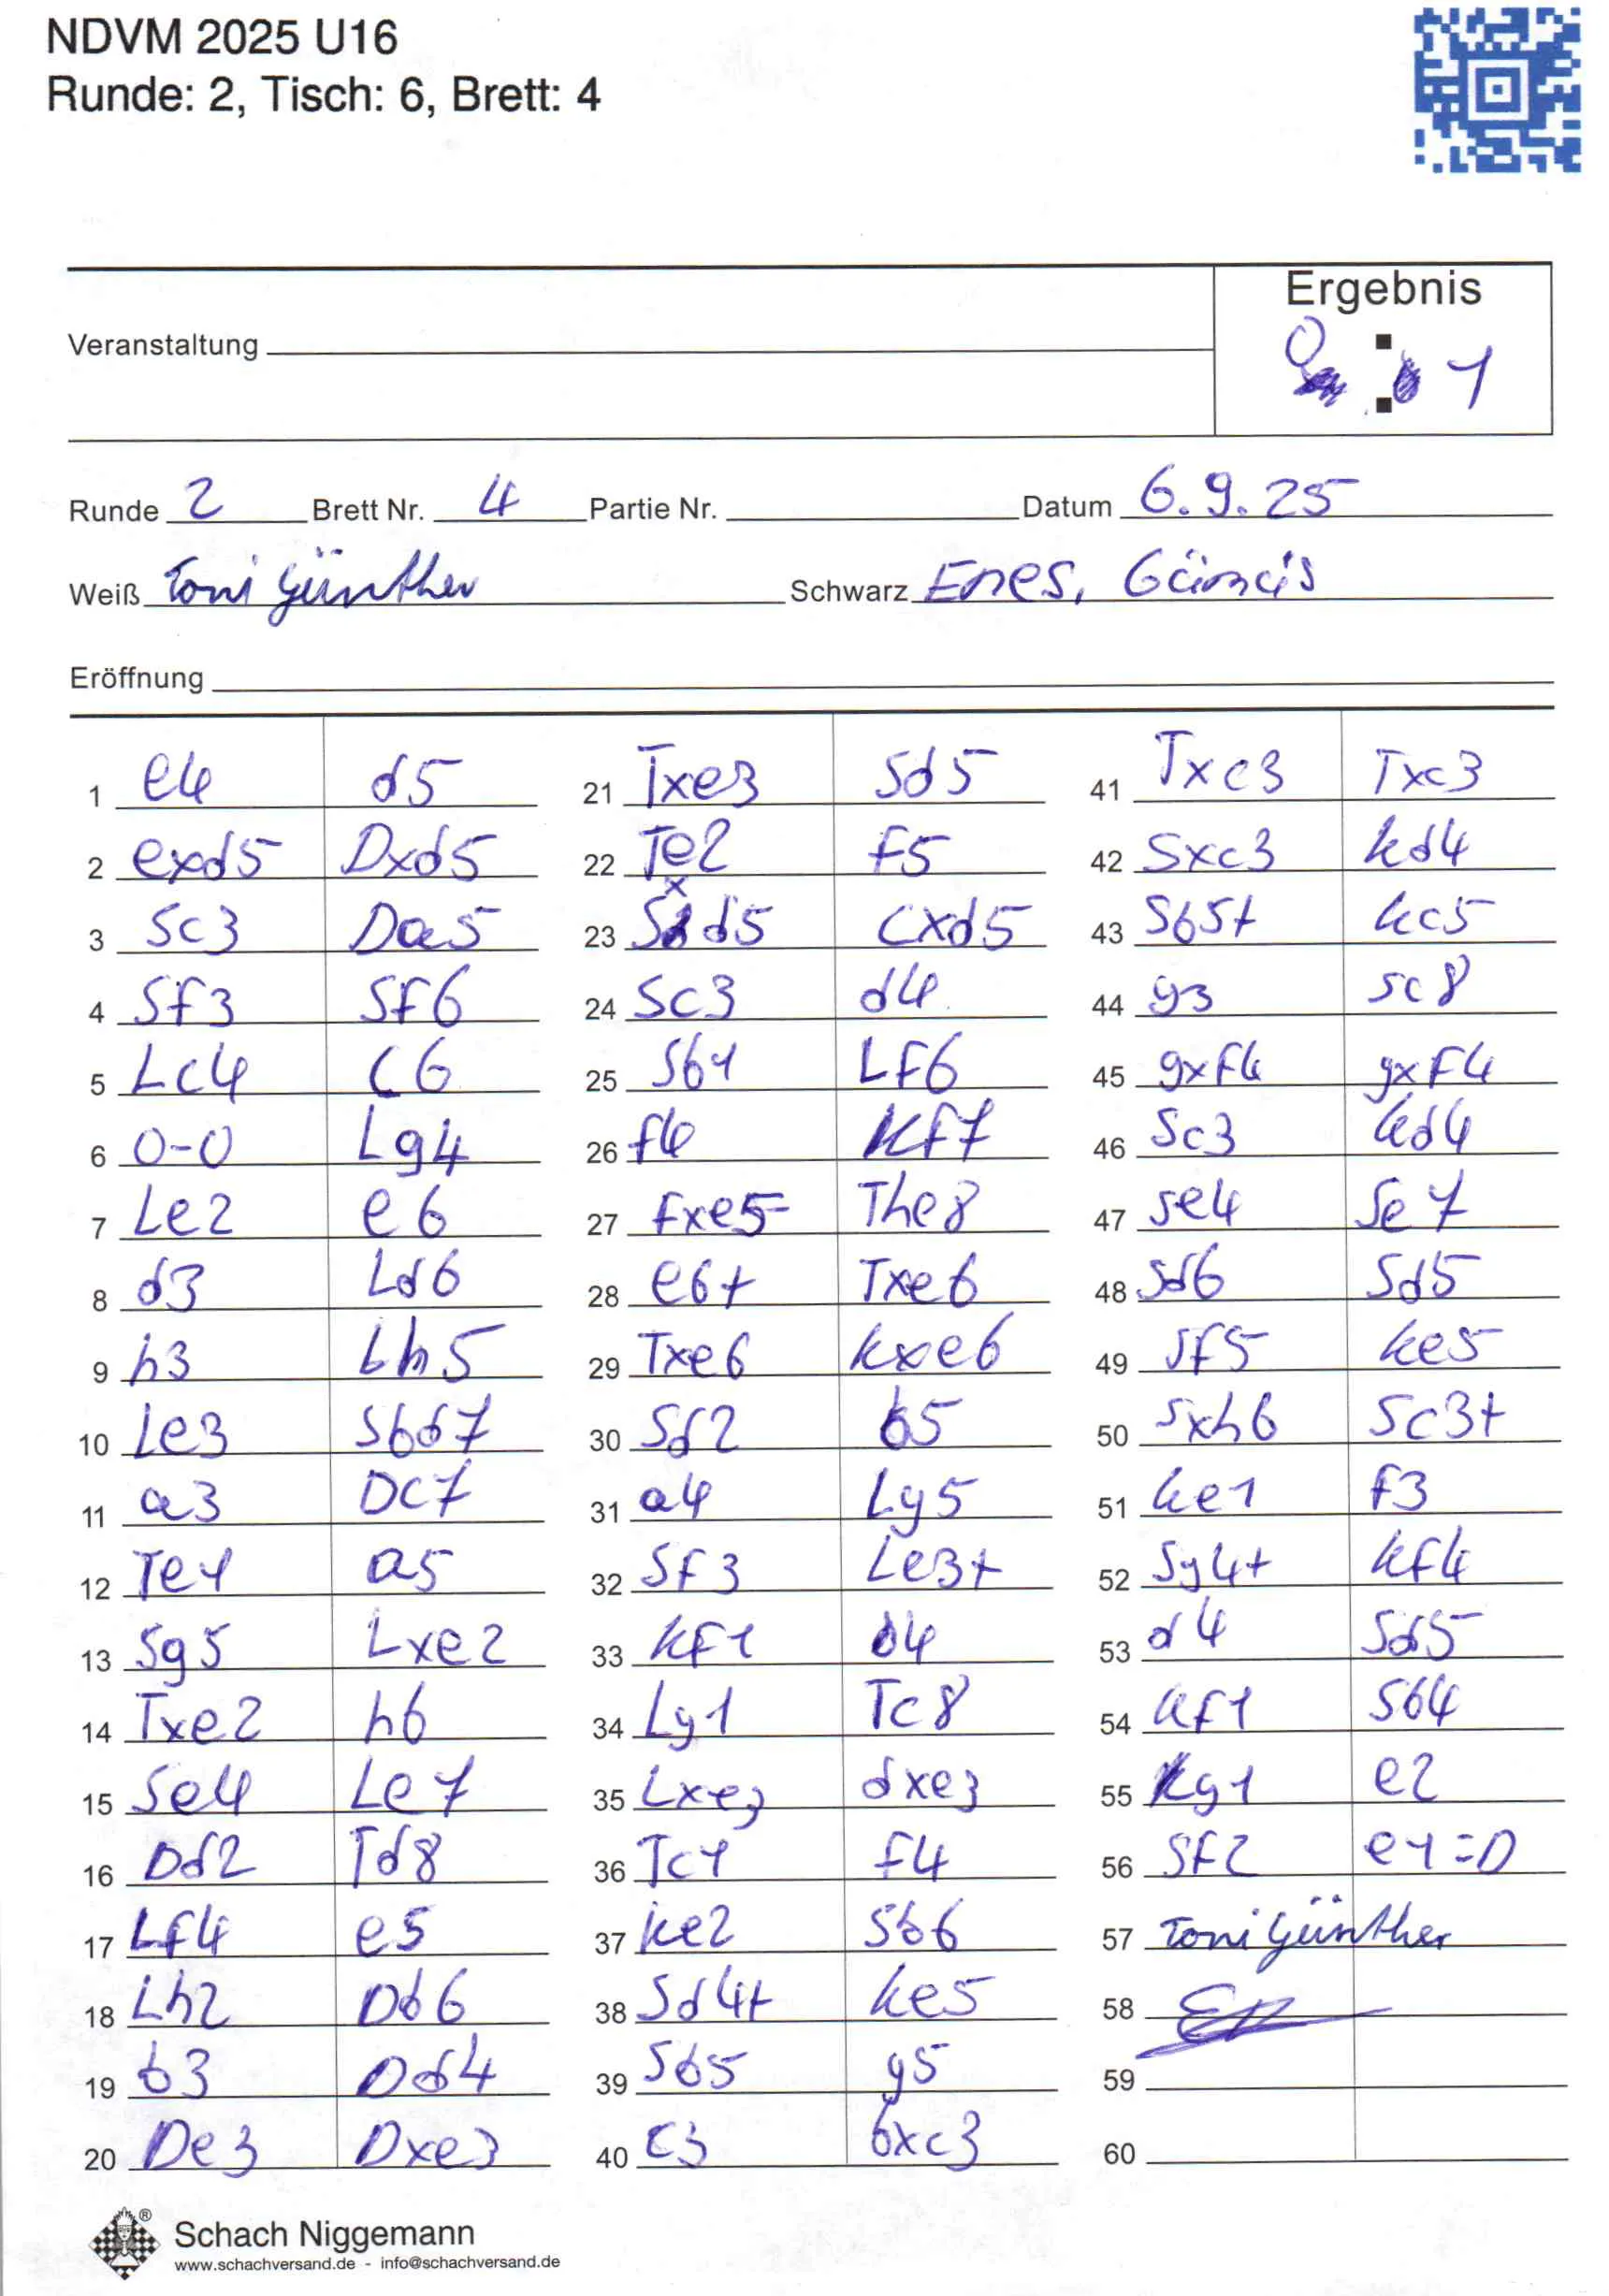 NDVM 2025 U16
Runde: 2, Tisch: 6, Brett: 4
Ergebnis
Veranstaltung
0 : 1
Runde 2 Brett Nr. 4 Partie Nr. Datum 6.9.25
Weiß Toni Günther Schwarz Enes, Gümüs
Eröffnung
1 e4 d5 21 Txe3 Sd5 41 Txc3 Txc3
2 exd5 Dxd5 22 Te2 f5 42 Sxc3 kd4
3 Sc3 Da5 23 Sxd5 cxd5 43 Sb5+ kc5
4 Sf3 Sf6 24 Sc3 d4 44 g3 Sc8
5 Lc4 c6 25 Sb1 Lf6 45 gxf4 gxf4
6 0-0 Lg4 26 f4 Kf7 46 Sc3 kd4
7 Le2 e6 27 fxe5 The8 47 Se4 Se7
8 d3 Ld6 28 e6+ Txe6 48 Sd6 Sd5
9 h3 Lh5 29 Txe6 kxe6 49 Sf5 ke5
10 Le3 Sbd7 30 Sd2 b5 50 Sxh6 Sc3+
11 a3 Dc7 31 a4 Lg5 51 ke1 f3
12 Te1 a5 32 Sf3 Le3+ 52 Sg4+ kf4
13 Sg5 Lxe2 33 kf1 b4 53 d4 Sd5
14 Txe2 h6 34 Lg1 Tc8 54 kf1 Sb4
15 Se4 Le7 35 Lxe3 dxe3 55 kg1 e2
16 Dd2 Td8 36 Tc1 f4 56 Sf2 e1=D
17 Lf4 e5 37 ke2 Sb6 57 Toni Günther
18 Lh2 Db6 38 Sd4+ ke5 58
19 b3 Dd4 39 Sb5 g5 59
20 De3 Dxe3 40 c3 bxc3 60
® Schach Niggemann
www.schachversand.de - info@schachversand.de